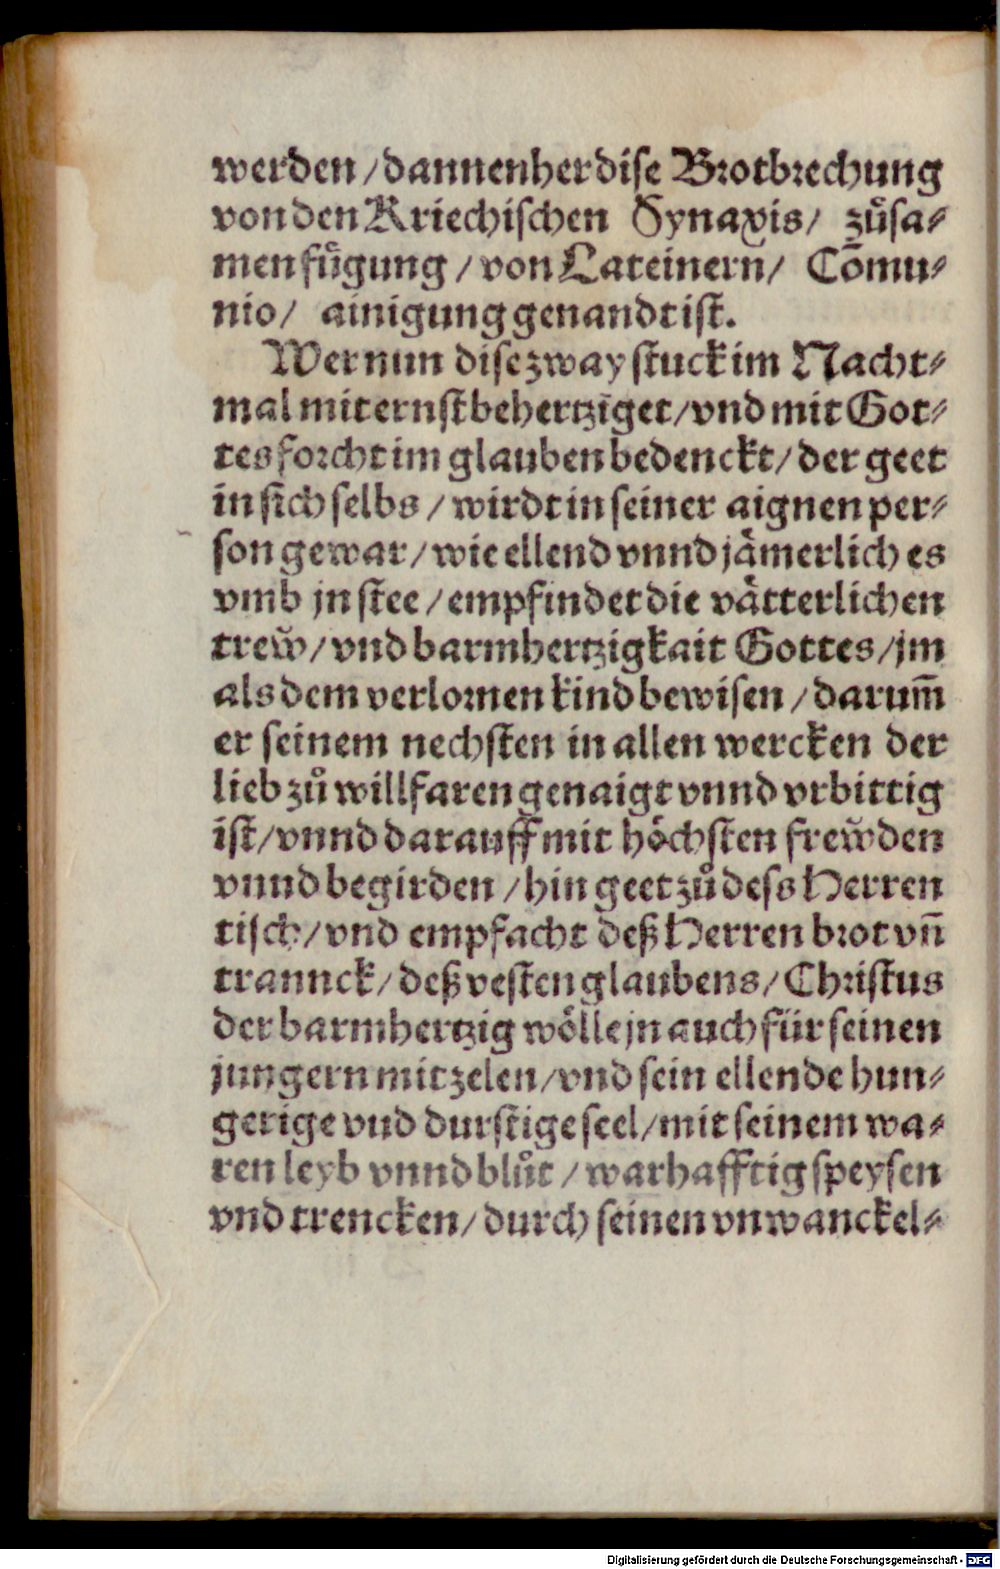 werden / dannenher dise Brotbrechung
von den Kriechischen Synaxis / zůsa⸗
men fůgung / von Lateinern / Cōmu⸗
nio / ainigung genandt ist.
Wer nun dise zway stuck im Nacht⸗
mal mit ernst behertziget / vnd mit Got⸗
tes forcht im glauben bedenckt / der geet
in sich selbs / wirdt in seiner aignen per⸗
son gewar / wie ellend vnnd jämerlich es
vmb jn stee / empfindet die vätterlichen
trew̌ / vnd barmhertzigkait Gottes / jm
als dem verlornen kind bewisen / darum̄
er seinem nechsten in allen wercken der
lieb zů willfaren genaigt vnnd vrbittig
ist / vnnd darauff mit höchsten frew̌den
vnnd begirden / hin geet zů dess Herren
tisch / vnd empfacht deß Herren brot vn̄
tranck / deß vesten glaubens / Christus
der barmhertzig wölle jn auch für seinen
jungern mitzelen / vnd sein ellende hun⸗
gerige vnd durstige seel / mit seinem wa⸗
ren leyb vnnd blůt / warhafftig speysen
vnd trencken / durch seinen vnwanckel⸗
Digitalisierung gefördert durch die Deutsche Forschungsgemeinschaft - DFG